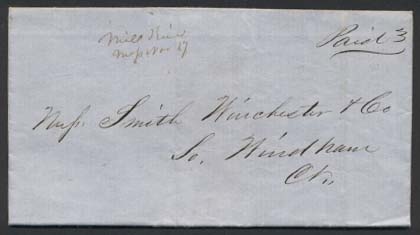 Mill River
Mass Nov 17
Paid 3
Mess. Smith Winchester & Co
So. Windham
Ct.